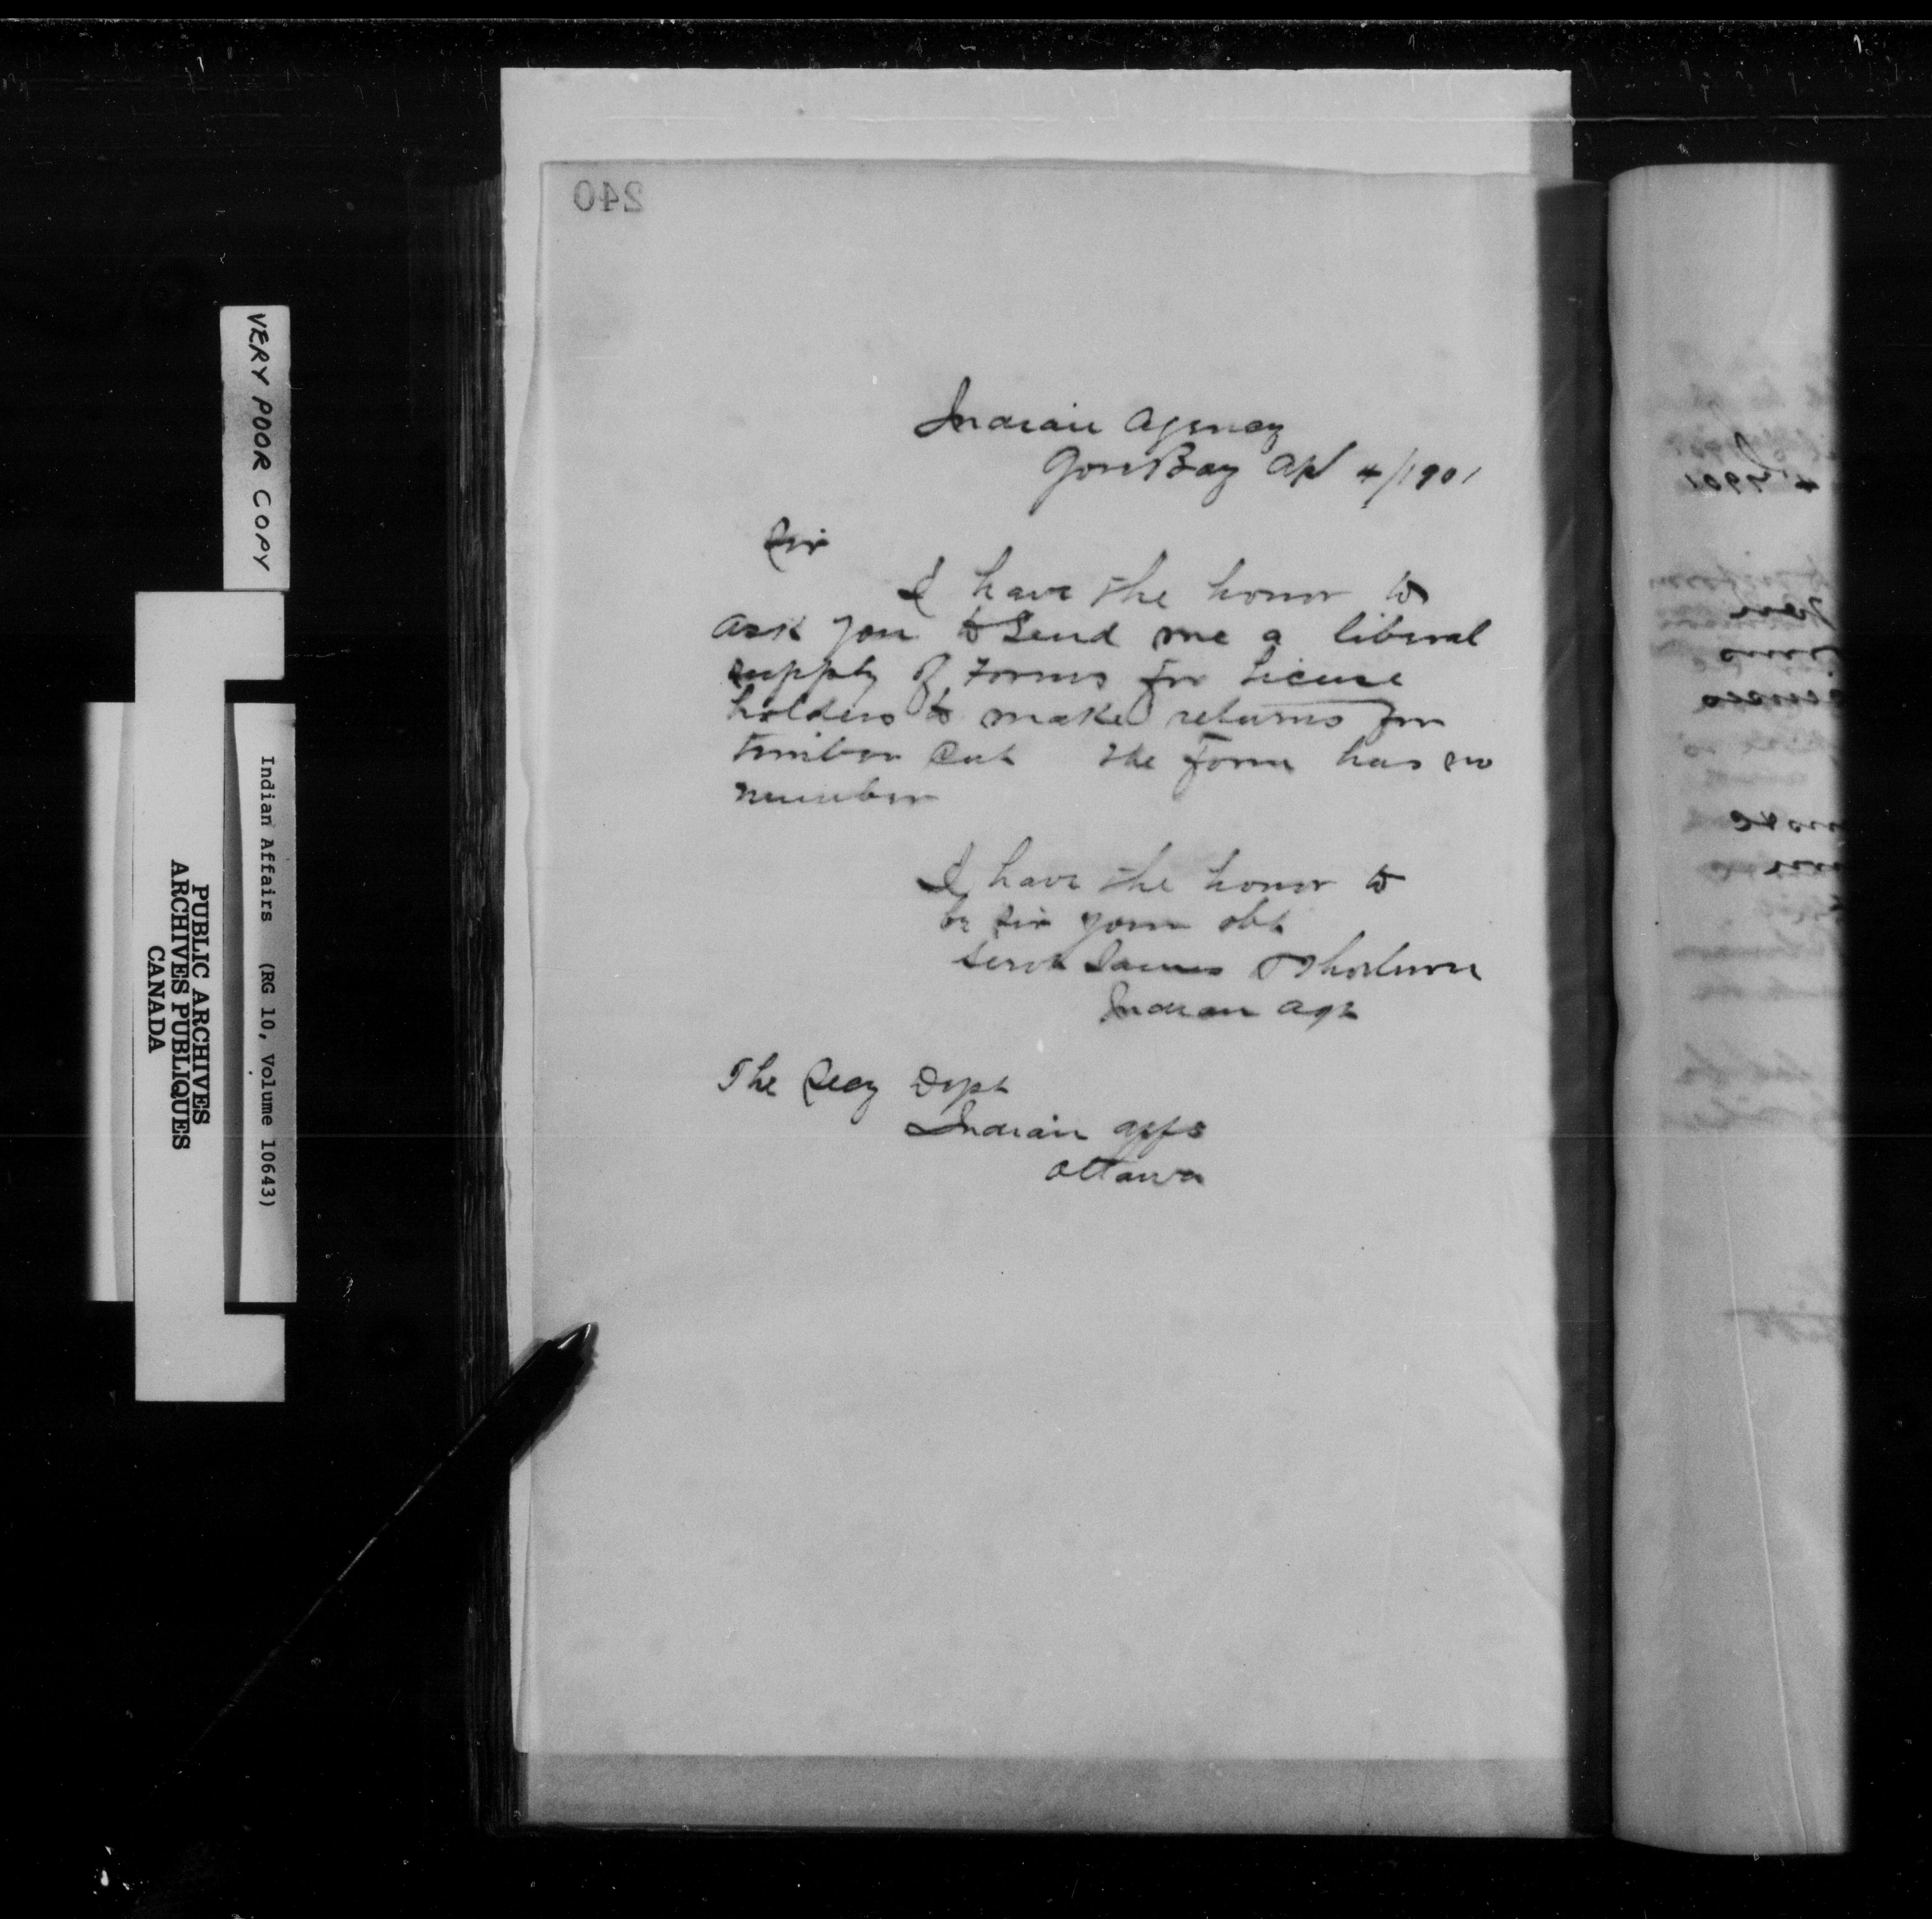 240
Indian Agency
Gore Bay Apl 4/1901
Sir
I have the honor to
ask you to send me a liberal
supply of forms for License
holders to make returns for
timber cut the form has no
number
I have the honor to
be sir your obt
servt James Thorburn
Indian Agt
The Secy Dept
Indian Affs
Ottawa
VERY POOR COPY
Indian Affairs (RG 10, Volume 10643)
PUBLIC ARCHIVES
ARCHIVES PUBLIQUES
CANADA